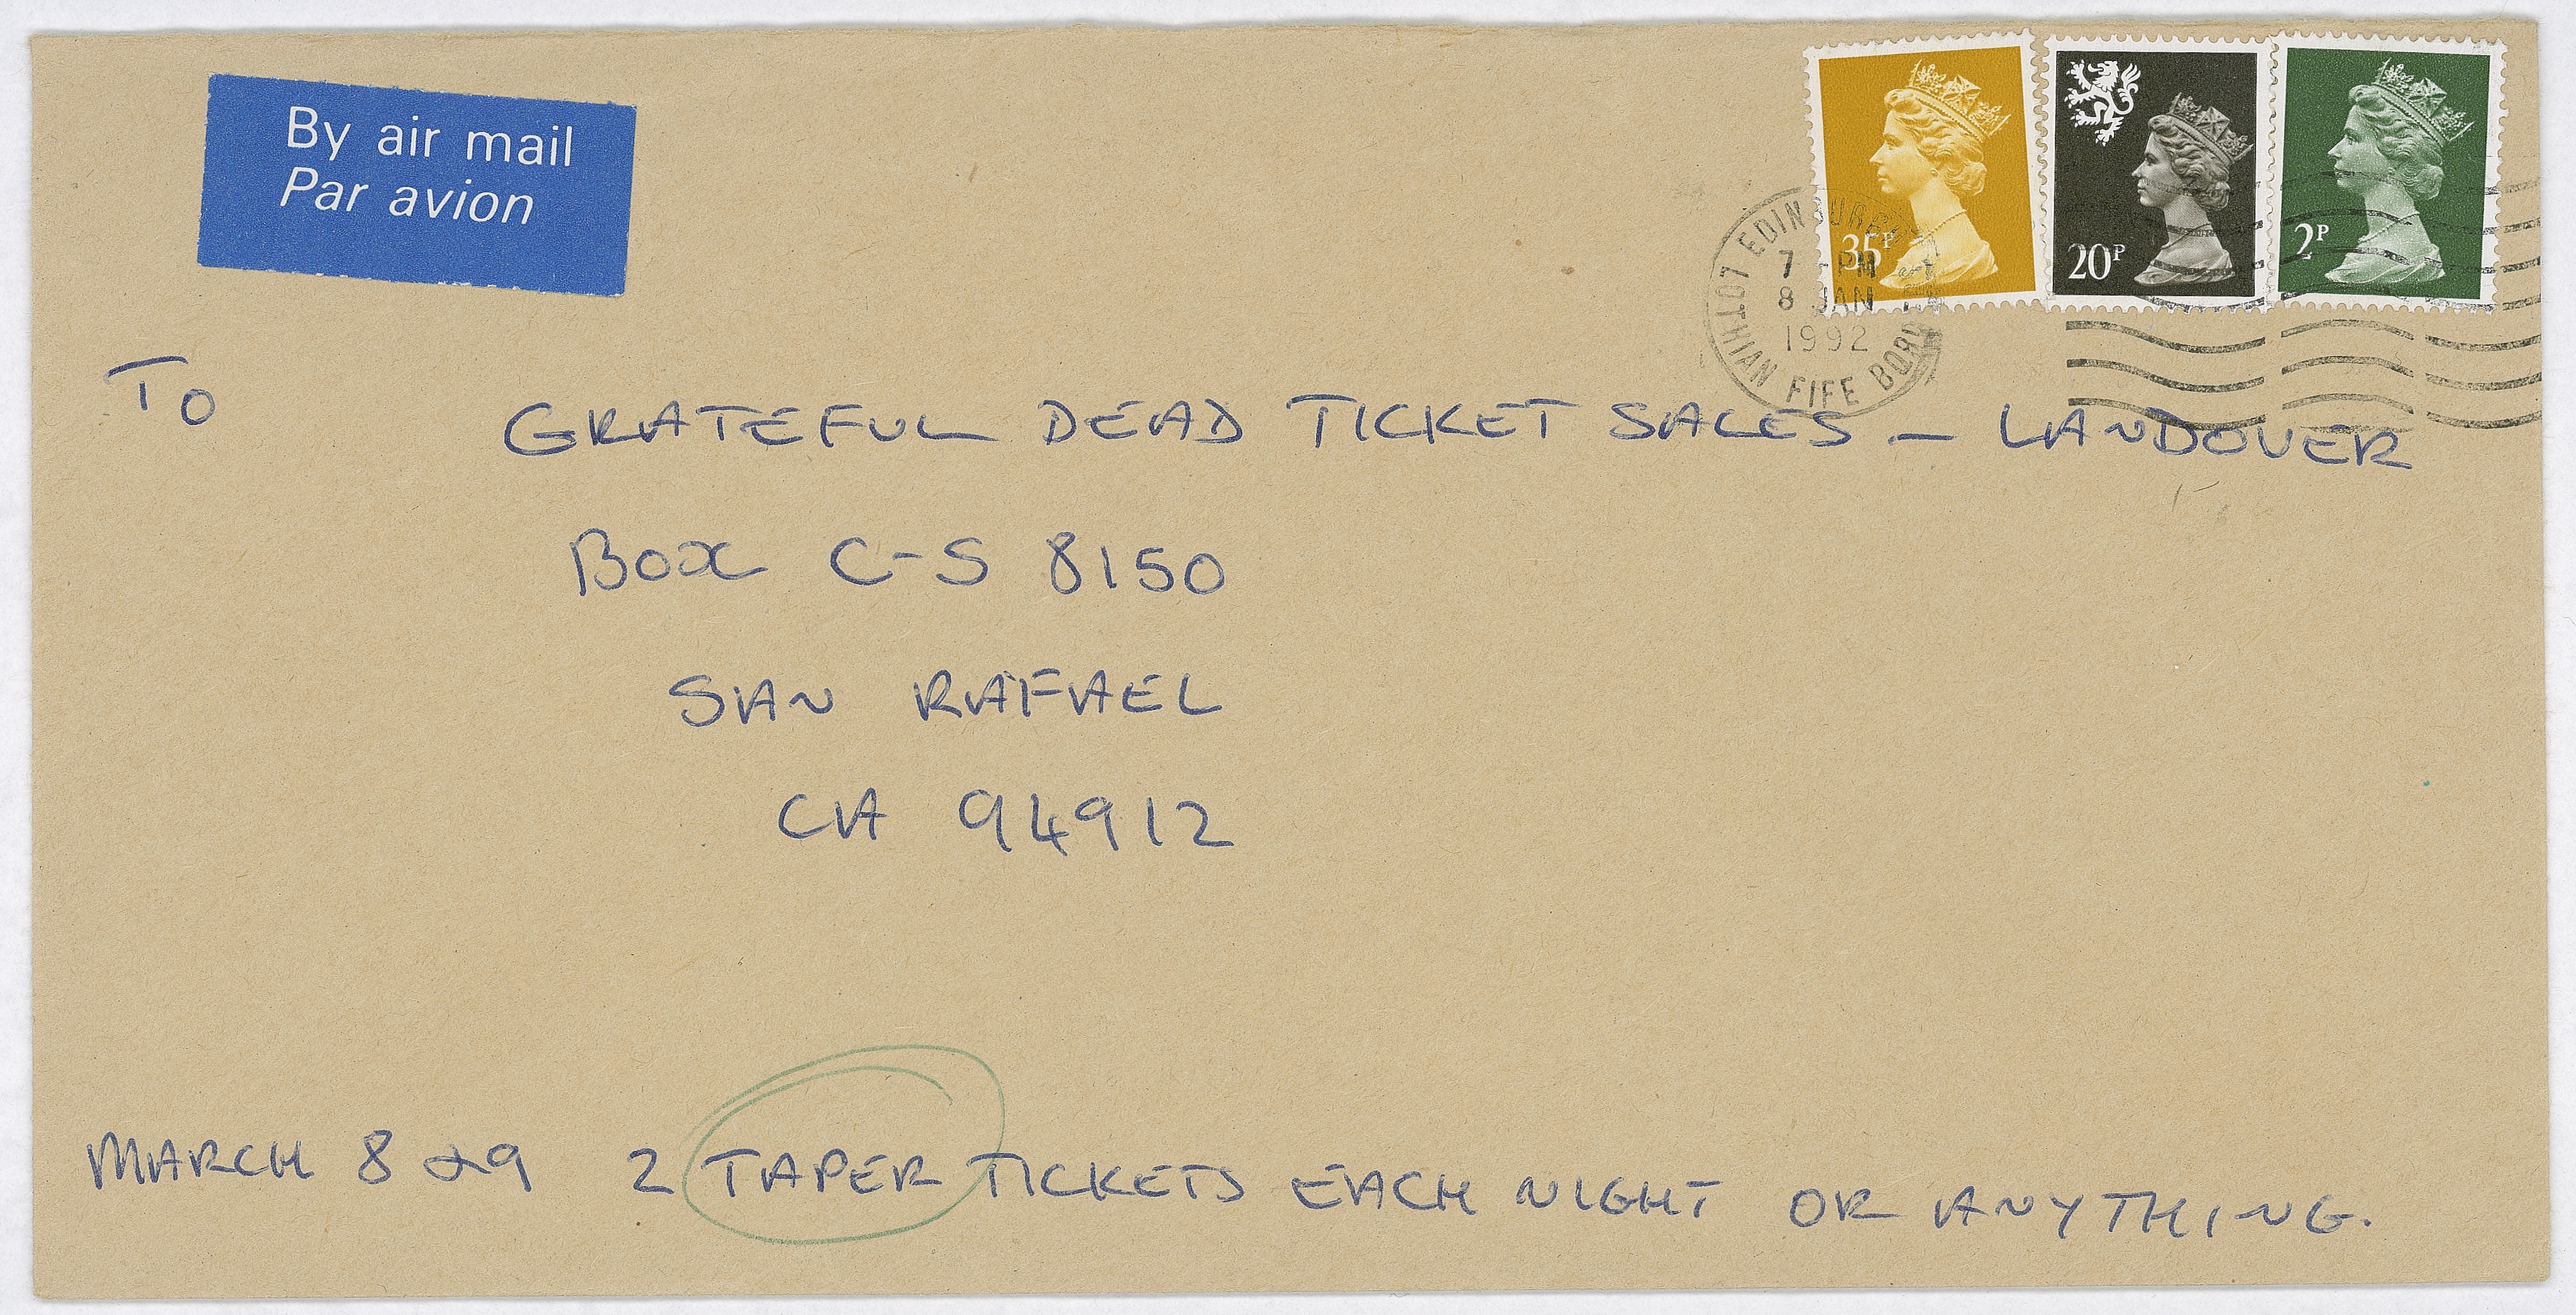 By air mail
Par avion
35P
20P
2P
EDINBURGH
LOTHIAN FIFE
7 - PM
8 JAN
1992
TO
GRATEFUL DEAD TICKET SALES - LANDOVER
BOX C-S 8150
SAN RAFAEL
CA 94912
MARCH 8 & 9 2 TAPER TICKETS EACH NIGHT OR ANYTHING.